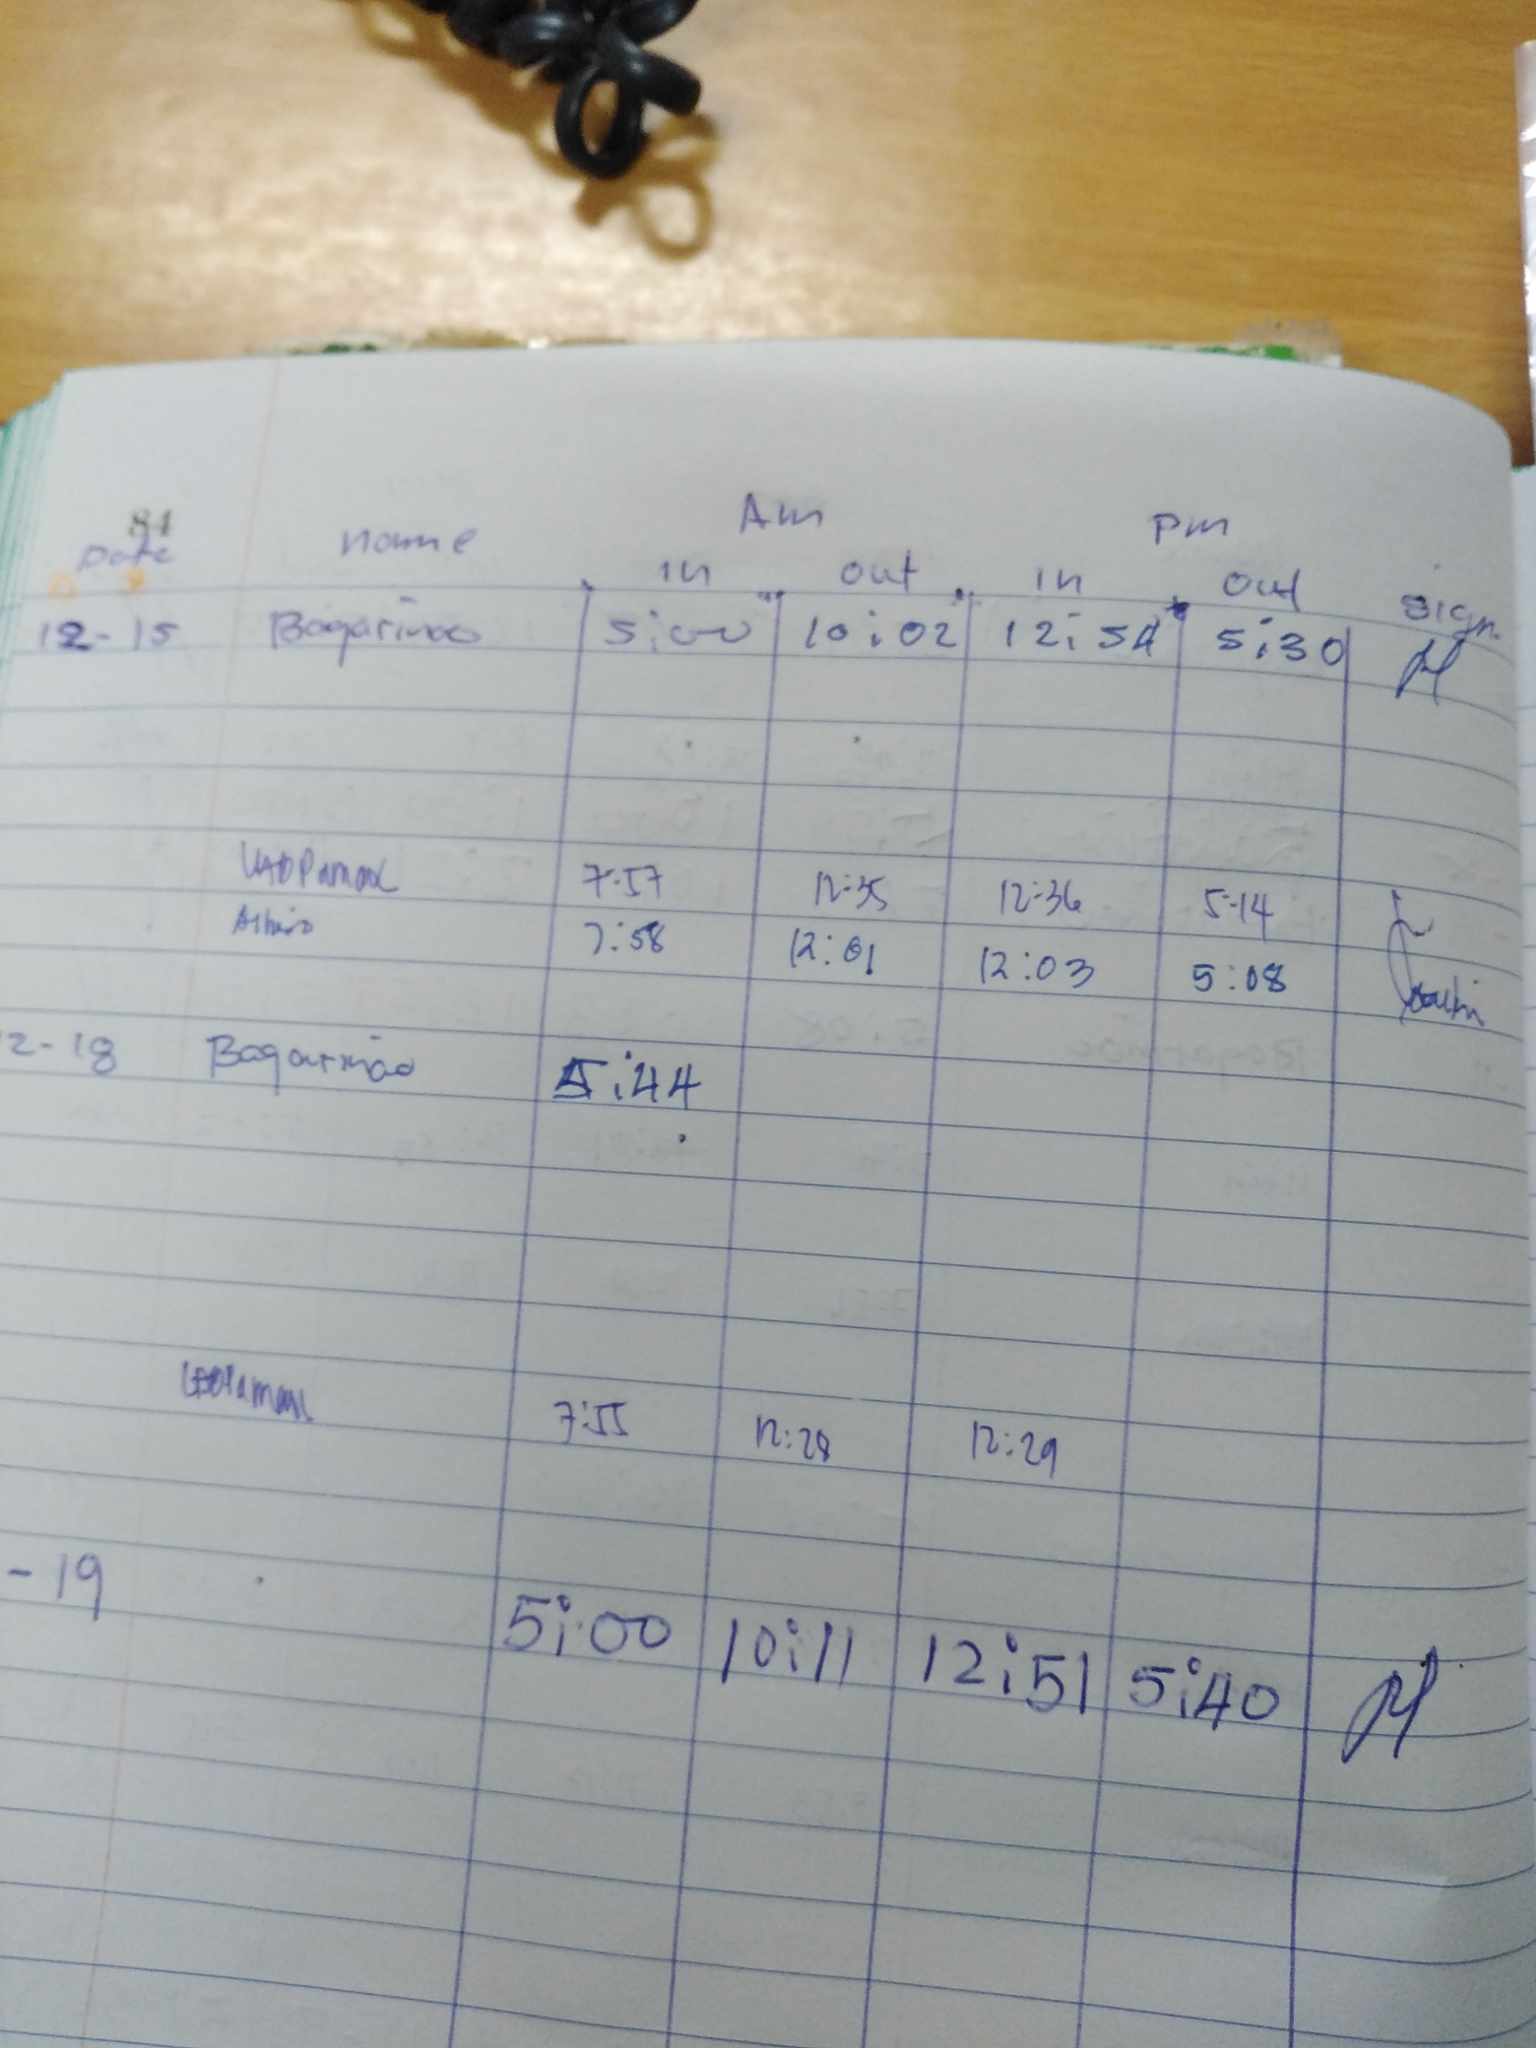 81
Date name Am pm
in out in out sign.
12-15 Bagarinao 5:00 10:02 12:54 5:30
7:57 12:35 12:36 5:14
7:58 12:01 12:03 5:08
2-18 Bagarinao 5:44
7:55 12:28 12:29
-19 5:00 10:11 12:51 5:40